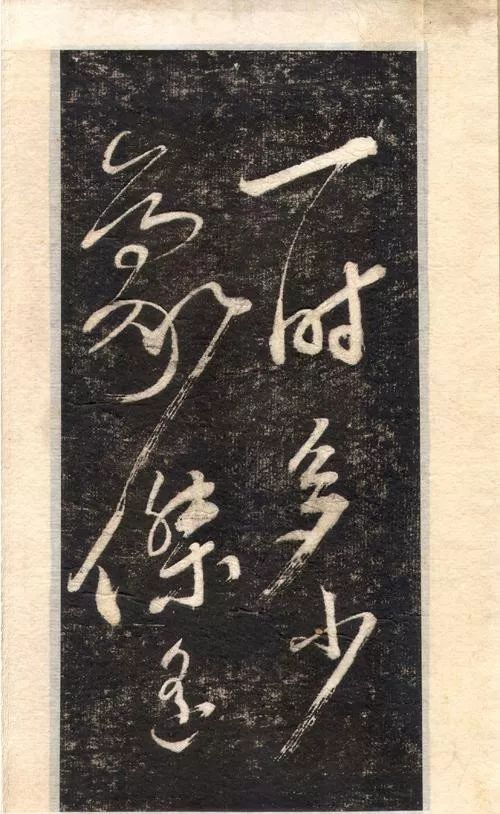 一时多少
豪杰遥